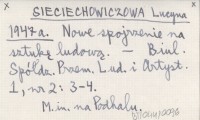 SIECIECHOWICZOWA Lucyna
1947a. Nowe spojrzenie na
sztukę ludową. — Biul.
Spółdz. Przem. Lud. i Artyst.
1, nr 2: 3-4.
M. in. na Podhalu.